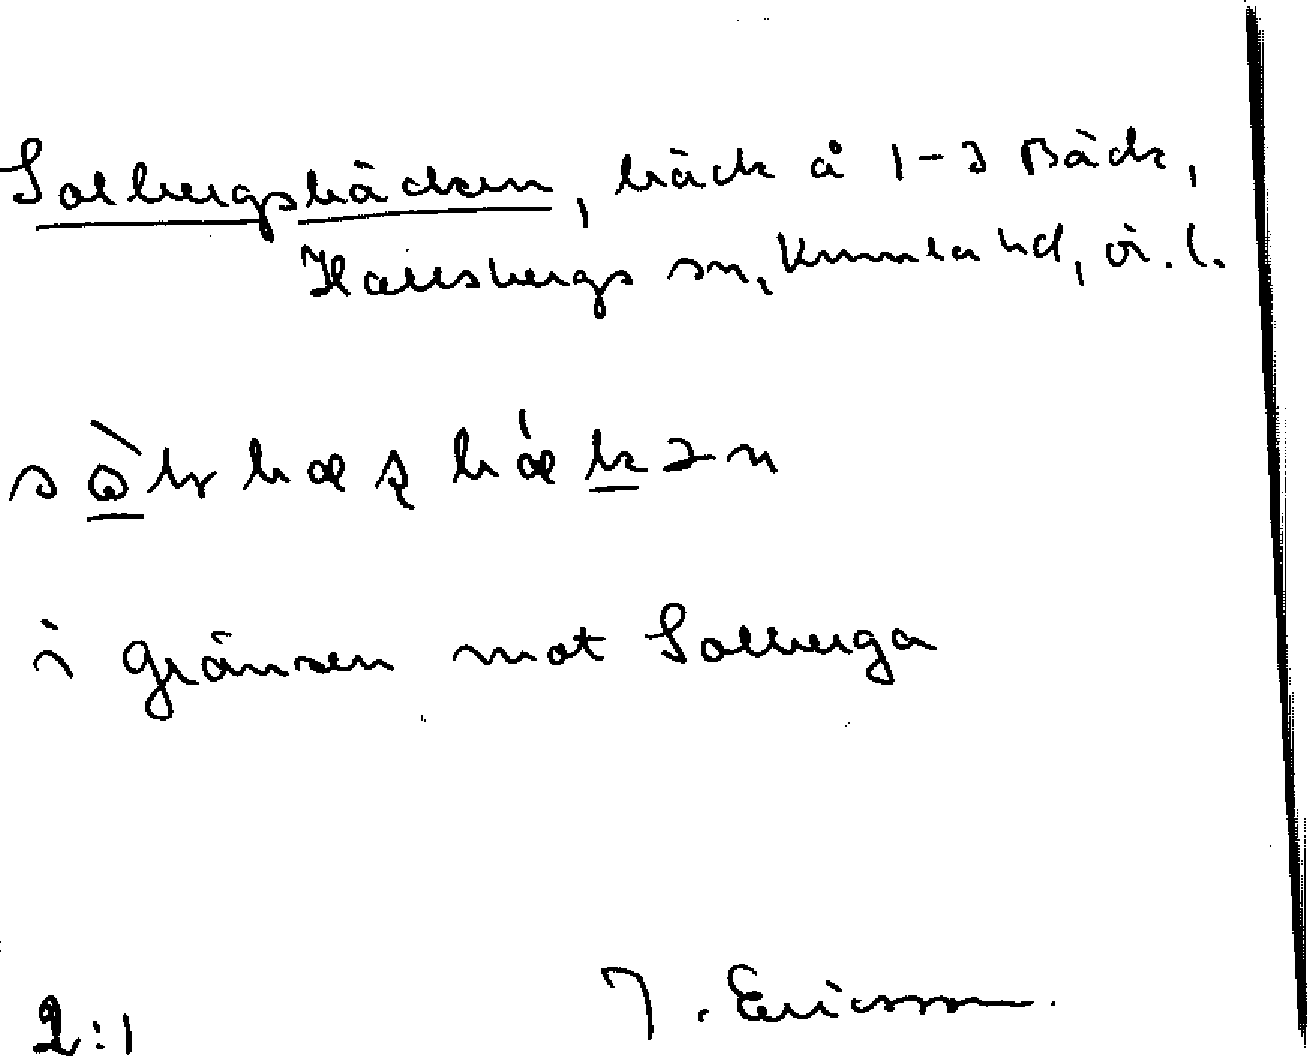 Solbergsbäcken, bäck å 1-3 Bäck,
Hallsbergs sn, Kumla hd, ör. l.
i gränsen mot Solberga
2:1 J. Ericsson.